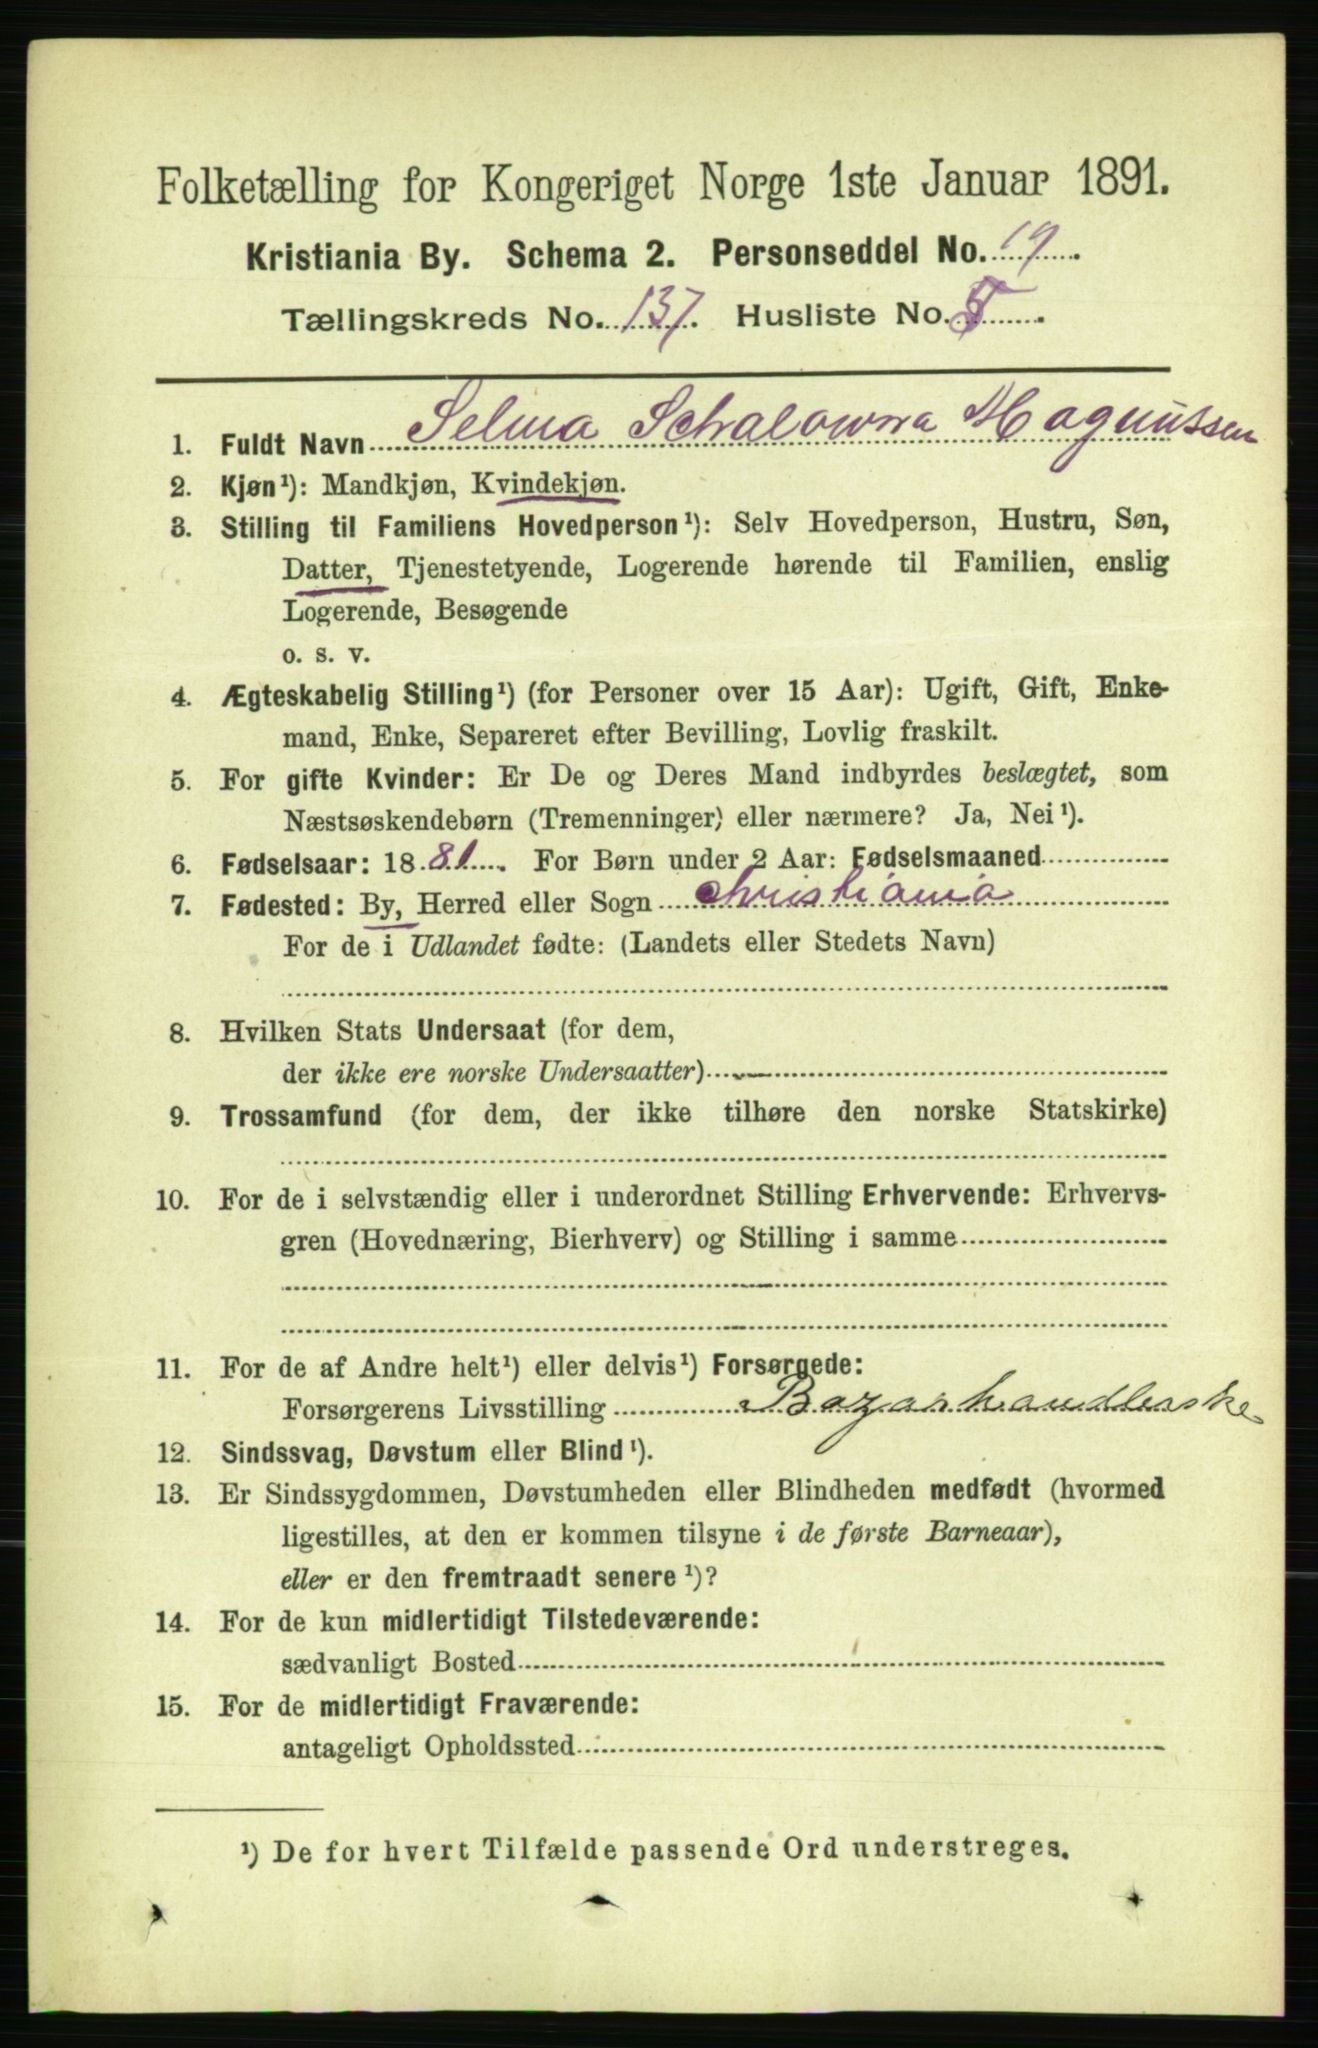 Folketælling for Kongeriget Norge 1ste Januar 1891.
Kristiania By. Schema 2. Personseddel No. 19.
Tællingskreds No. 137. Husliste No. 5.
1. Fuldt Navn Selma Schalowna Magnussen
2. Kjøn¹): Mandkjøn, Kvindekjøn.
3. Stilling til Familiens Hovedperson¹): Selv Hovedperson, Hustru, Søn,
Datter, Tjenestetyende, Logerende hørende til Familien, enslig
Logerende, Besøgende
o. s. v.
4. Ægteskabelig Stilling¹) (for Personer over 15 Aar): Ugift, Gift, Enke-
mand, Enke, Separeret efter Bevilling, Lovlig fraskilt.
5. For gifte Kvinder: Er De og Deres Mand indbyrdes beslægtet, som
Næstsøskendebørn (Tremenninger) eller nærmere? Ja, Nei¹).
6. Fødselsaar: 1881. For Børn under 2 Aar: Fødselsmaaned
7. Fødested: By, Herred eller Sogn Christiania
For de i Udlandet fødte: (Landets eller Stedets Navn)
8. Hvilken Stats Undersaat (for dem,
der ikke ere norske Undersaatter)
9. Trossamfund (for dem, der ikke tilhøre den norske Statskirke)
10. For de i selvstændig eller i underordnet Stilling Erhvervende: Erhvervs-
gren (Hovednæring, Bierhverv) og Stilling i samme
11. For de af Andre helt¹) eller delvis¹) Forsørgede:
Forsørgerens Livsstilling Bazarhandlerske
12. Sindssvag, Døvstum eller Blind¹).
13. Er Sindssygdommen, Døvstumheden eller Blindheden medfødt (hvormed
ligestilles, at den er kommen tilsyne i de første Barneaar),
eller er den fremtraadt senere¹)?
14. For de kun midlertidigt Tilstedeværende:
sædvanligt Bosted
15. For de midlertidigt Fraværende:
antageligt Opholdssted
¹) De for hvert Tilfælde passende Ord understreges.